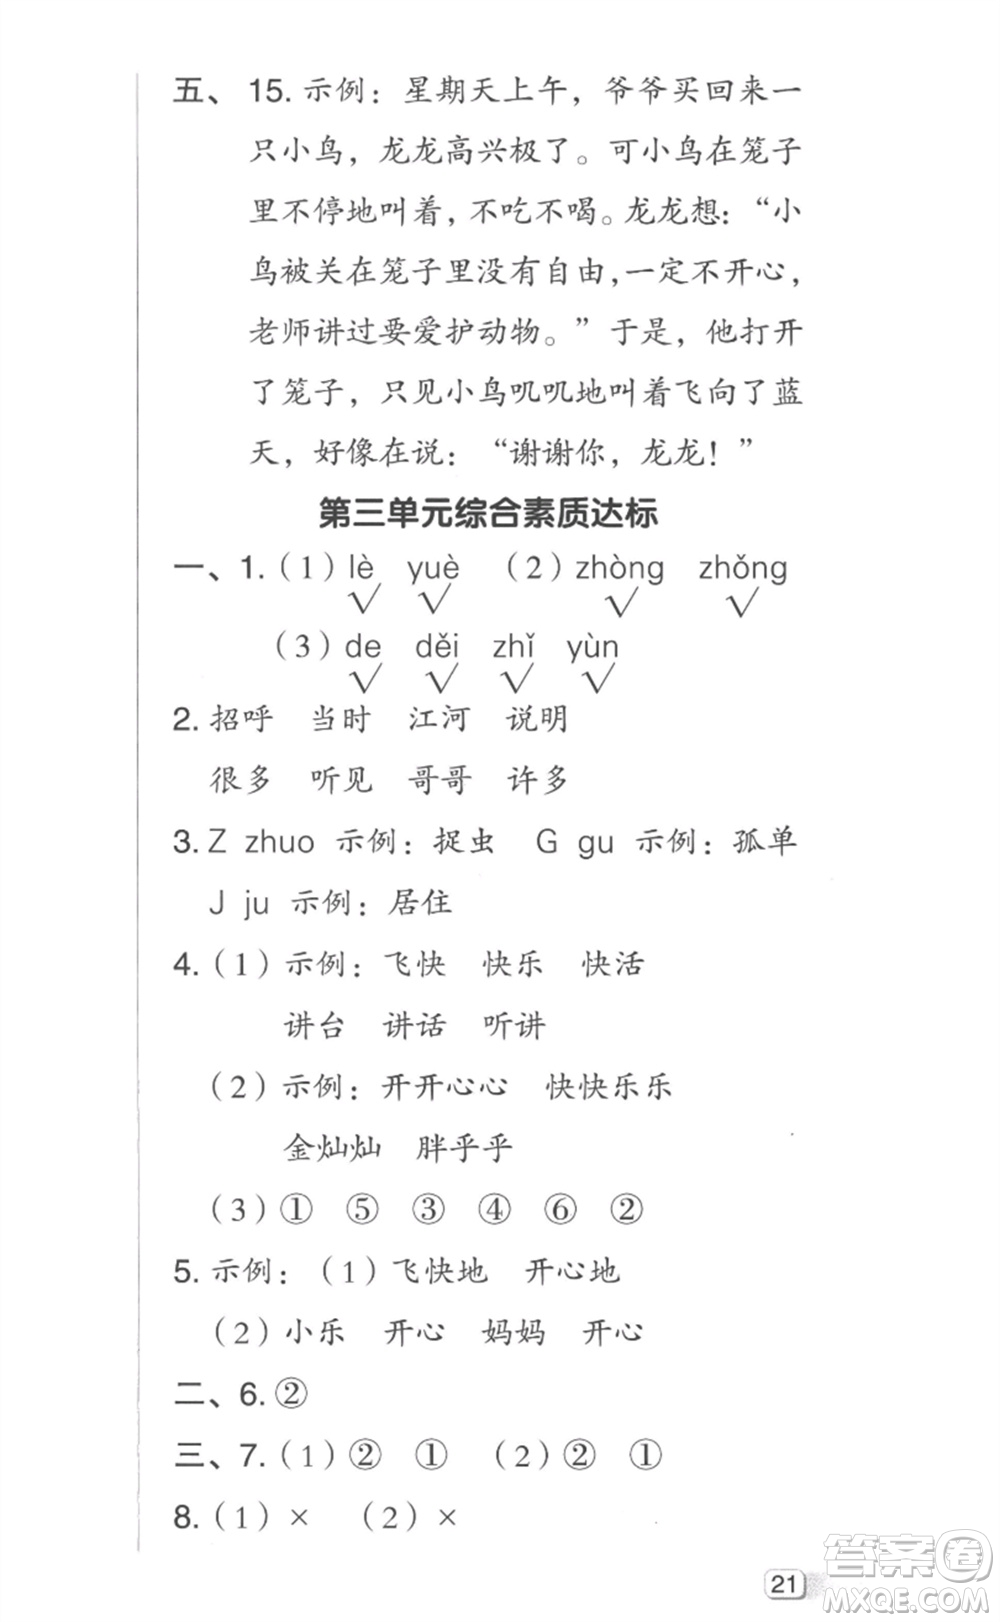 五、15. 示例：星期天上午，爷爷买回来一
只小鸟，龙龙高兴极了。可小鸟在笼子
里不停地叫着，不吃不喝。龙龙想：“小
鸟被关在笼子里没有自由，一定不开心，
老师讲过要爱护动物。”于是，他打开
了笼子，只见小鸟叽叽地叫着飞向了蓝
天，好像在说：“谢谢你，龙龙！”
第三单元综合素质达标
一、1.（1）lè yuè （2）zhòng zhǒng
√ √ √ √
（3）de děi zhǐ yùn
√ √ √ √
2. 招呼 当时 江河 说明
很多 听见 哥哥 许多
3. Z zhuo 示例：捉虫 G gu 示例：孤单
J ju 示例：居住
4.（1）示例：飞快 快乐 快活
讲台 讲话 听讲
（2）示例：开开心心 快快乐乐
金灿灿 胖乎乎
（3）① ⑤ ③ ④ ⑥ ②
5. 示例：（1）飞快地 开心地
（2）小乐 开心 妈妈 开心
二、6. ②
三、7.（1）② ① （2）② ①
8.（1）× （2）×
21
答案圈
MXQE.COM